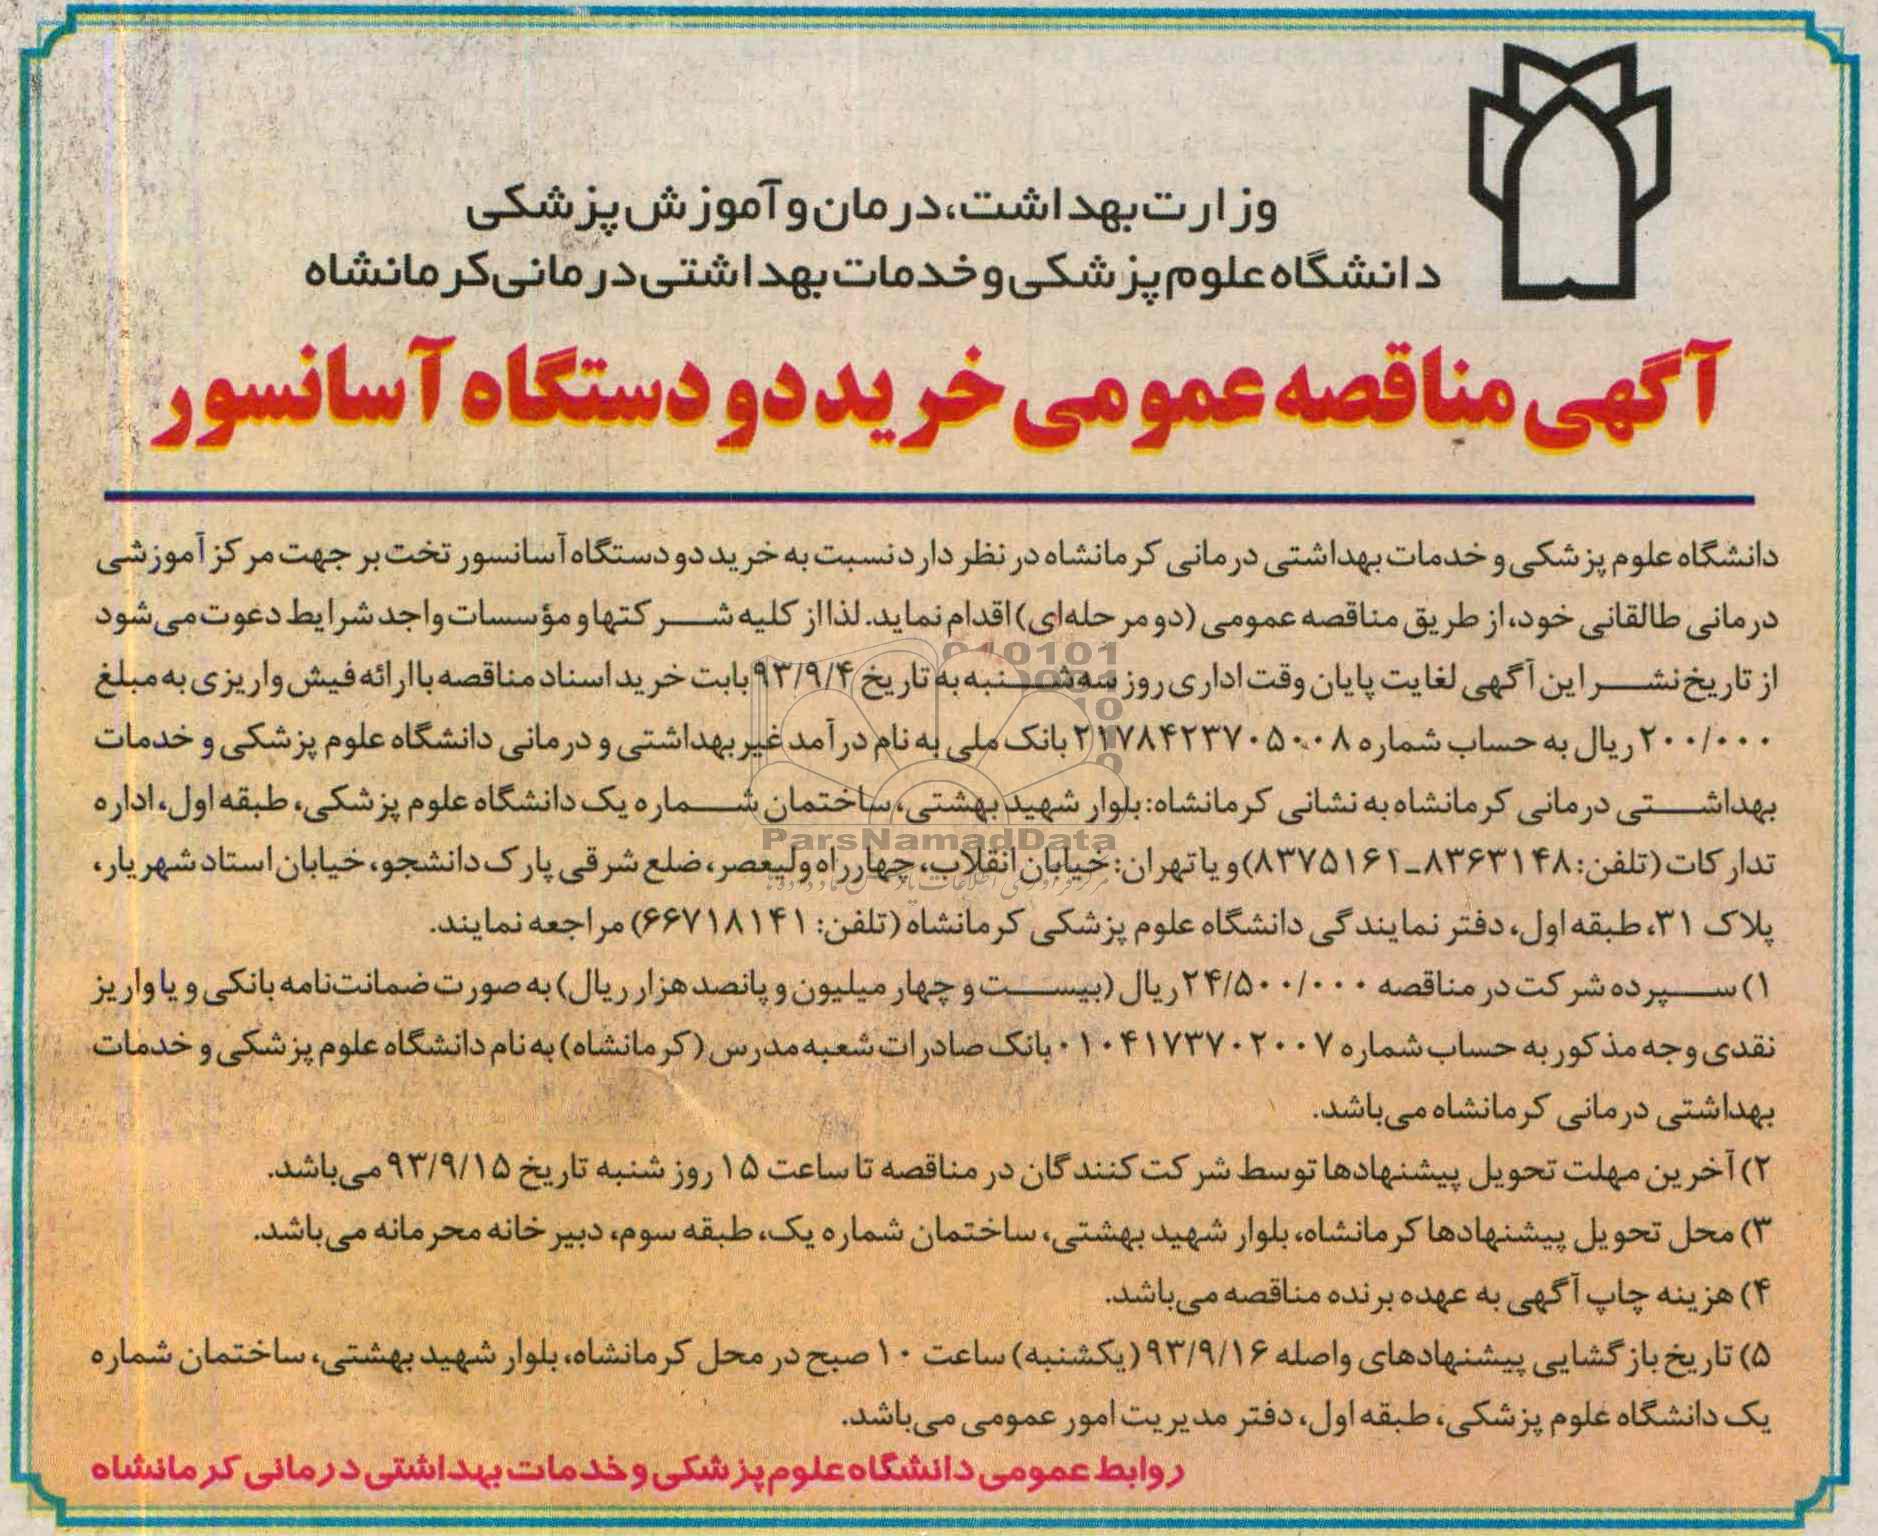 وزارت بهداشت، درمان و آموزش پزشکی
دانشگاه علوم پزشکی و خدمات بهداشتی درمانی کرمانشاه
آگهی مناقصه عمومی خرید دو دستگاه آسانسور
دانشگاه علوم پزشکی و خدمات بهداشتی درمانی کرمانشاه در نظر دارد نسبت به خرید دو دستگاه آسانسور تخت بر جهت مرکز آموزشی
درمانی طالقانی خود، از طریق مناقصه عمومی (دو مرحله‌ای) اقدام نماید. لذا از کلیه شرکتها و مؤسسات واجد شرایط دعوت می‌شود
از تاریخ نشر این آگهی لغایت پایان وقت اداری روز سه‌شنبه به تاریخ ۹۳/۹/۴ بابت خرید اسناد مناقصه با ارائه فیش واریزی به مبلغ
۲۰۰/۰۰۰ ریال به حساب شماره ۲۱۷۸۴۲۳۷۰۵۰۰۸ بانک ملی به نام درآمد غیر بهداشتی و درمانی دانشگاه علوم پزشکی و خدمات
بهداشتی درمانی کرمانشاه به نشانی کرمانشاه: بلوار شهید بهشتی، ساختمان شماره یک دانشگاه علوم پزشکی، طبقه اول، اداره
تدارکات (تلفن: ۸۳۶۳۱۴۸ـ۸۳۷۵۱۶۱) و یا تهران: خیابان انقلاب، چهارراه ولیعصر، ضلع شرقی پارک دانشجو، خیابان استاد شهریار،
پلاک ۳۱، طبقه اول، دفتر نمایندگی دانشگاه علوم پزشکی کرمانشاه (تلفن: ۶۶۷۱۸۱۴۱) مراجعه نمایند.
۱) سپرده شرکت در مناقصه ۲۴/۵۰۰/۰۰۰ ریال (بیست و چهار میلیون و پانصد هزار ریال) به صورت ضمانت‌نامه بانکی و یا واریز
نقدی وجه مذکور به حساب شماره ۰۱۰۴۱۷۳۷۰۲۰۰۷ بانک صادرات شعبه مدرس (کرمانشاه) به نام دانشگاه علوم پزشکی و خدمات
بهداشتی درمانی کرمانشاه می‌باشد.
۲) آخرین مهلت تحویل پیشنهادها توسط شرکت کنندگان در مناقصه تا ساعت ۱۵ روز شنبه تاریخ ۹۳/۹/۱۵ می‌باشد.
۳) محل تحویل پیشنهادها کرمانشاه، بلوار شهید بهشتی، ساختمان شماره یک، طبقه سوم، دبیرخانه محرمانه می‌باشد.
۴) هزینه چاپ آگهی به عهده برنده مناقصه می‌باشد.
۵) تاریخ بازگشایی پیشنهادهای واصله ۹۳/۹/۱۶ (یکشنبه) ساعت ۱۰ صبح در محل کرمانشاه، بلوار شهید بهشتی، ساختمان شماره
یک دانشگاه علوم پزشکی، طبقه اول، دفتر مدیریت امور عمومی می‌باشد.
روابط عمومی دانشگاه علوم پزشکی و خدمات بهداشتی درمانی کرمانشاه
ParsNamadData